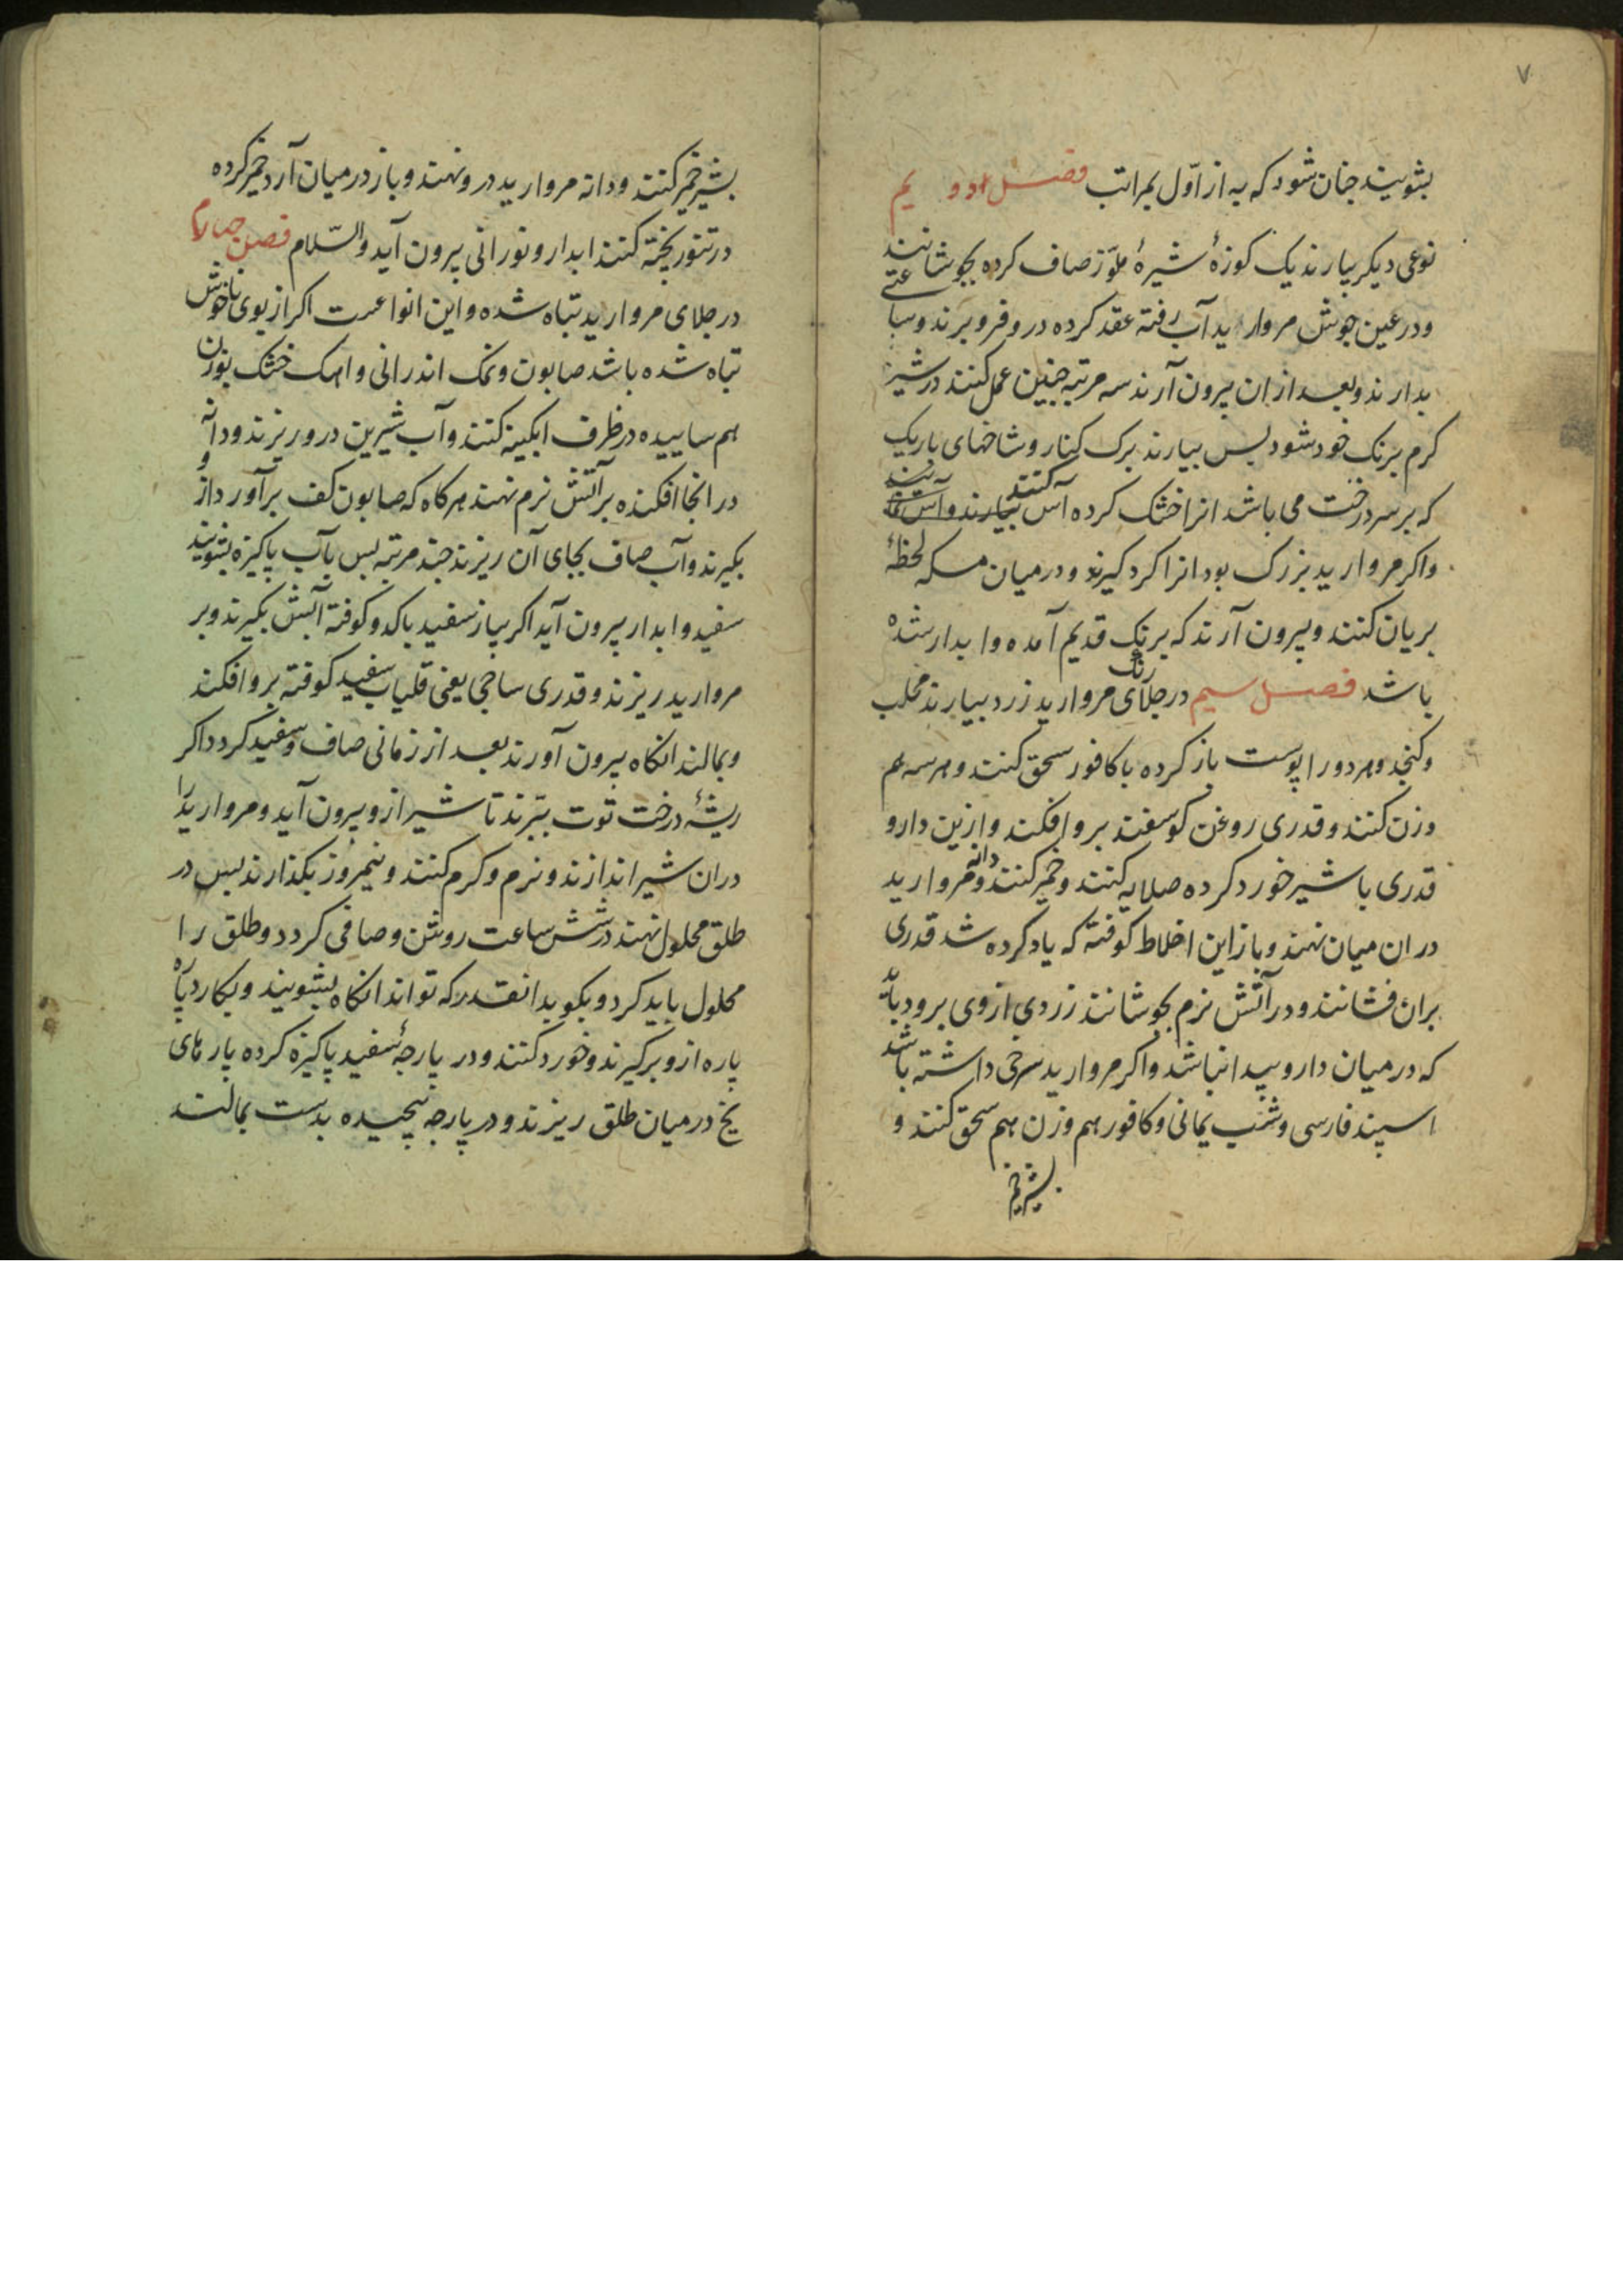 ۷
بشویند جنان شود که به از اوّل بمراتب فصل دویم
نوعی دیکر بیارند یک کوزهٔ شیرهٔ ملوّز صاف کرده بجوشانند
و در عین جوش مروارید آب رفته عقد کرده درو فرو برند و ساعتی
بدارند و بعد از ان بیرون آرند سه مرتبه جنین عمل کنند در شیر
کرم برنک خود شود بس بیارند برک کنار و شاخهای باریک
که بر سر درخت می باشد انرا خشک کرده آس کنند
واکر مروارید بزرک بود انرا کرد کیرند و درمیان مسکه لحظهٔ
بریان کنند و بیرون آرند که برنک قدیم آمده و ابدار شده
باشد فصل سیم در جلای رنک مروارید زرد بیارند محلب
و کنجد و هر دو را پوست باز کرده با کافور سحق کنند و هر سه هم
وزن کنند و قدری روغن کوسفند برو افکند و ازین دارو
قدری با شیر خورد کرده صلایه کنند و خمیر کنند و دانه مروارید
در ان میان نهند و باز این اخلاط کوفته که یاد کرده شد قدری
بران فشانند و در آتش نرم بجوشانند زردی ازوی برود باید
که درمیان دارو پیدا نباشد و اکر مروارید سرخی داشته باشد
اسپند فارسی و شب یمانی و کافور هم وزن هم سحق کنند و
بشیر خمیر
بشیر خمیر کنند و دانه مروارید درو نهند و باز درمیان آرد خمیر کرده
در تنور پخته کنند ابدار و نورانی بیرون آید والسّلام فصل جهارم
در جلای مروارید تباه شده و این انواعست اکر از بوی ناخوش
تباه شده باشد صابون و نمک اندرانی و اهک خشک بوزن
هم ساییده در ظرف ابکینه کنند و آب شیرین درو ریزند و دانه
در انجا افکنده بر آتش نرم نهند هرکاه که صابون کف برآورد از و
بکیرند و آب صاف بجای آن ریزند جند مرتبه بس بآب پاکیزه بشویند
سفید و ابدار بیرون آید اکر پیاز سفید با کدو کوفته آبش بکیرند و بر
مروارید ریزند و قدری ساجی یعنی قلیاب سفید کوفته برو افکند
و بمالند انکاه بیرون آورند بعد از زمانی صاف و سفید کردد اکر
ریشهٔ درخت توت ببرند تا شیر ازو بیرون آید و مروارید را
دران شیر اندازند و نرم و کرم کنند و نیمروز بکذارند بس در
طلق محلول نهند در شش ساعت روشن و صافی کردد و طلق را
محلول باید کرد و بکوبد انقدر که تواند انکاه بشویند و بکارد پاره
پاره ازو برکیرند و خورد کنند و در پارجهٔ سفید پاکیزه کرده پارهای
یخ درمیان طلق ریزند و در پارجه پیچیده بدست بمالند